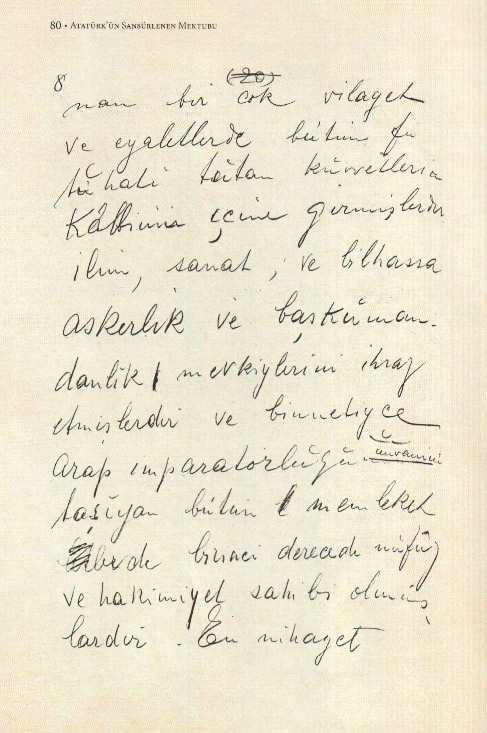 80 • ATATÜRK'ÜN SANSÜRLENEN MEKTUBU
8
(20)
nan bir çok vilayet
ve eyaletlerde bütün fu
tühatı tutan kuvvetlerin
Kalbinin içine girmişlerdir
ilim, sanat, ve bilhassa
askerlik ve başkuman-
danlık mevkiylerini ihraz
etmişlerdir ve binnetiyce
arap imparatorluğu ünvanını
taşıyan bütün memleket
lerde birinci derecede nüfuz
ve hakimiyet sahibi olmuş
lardır. En nihayet